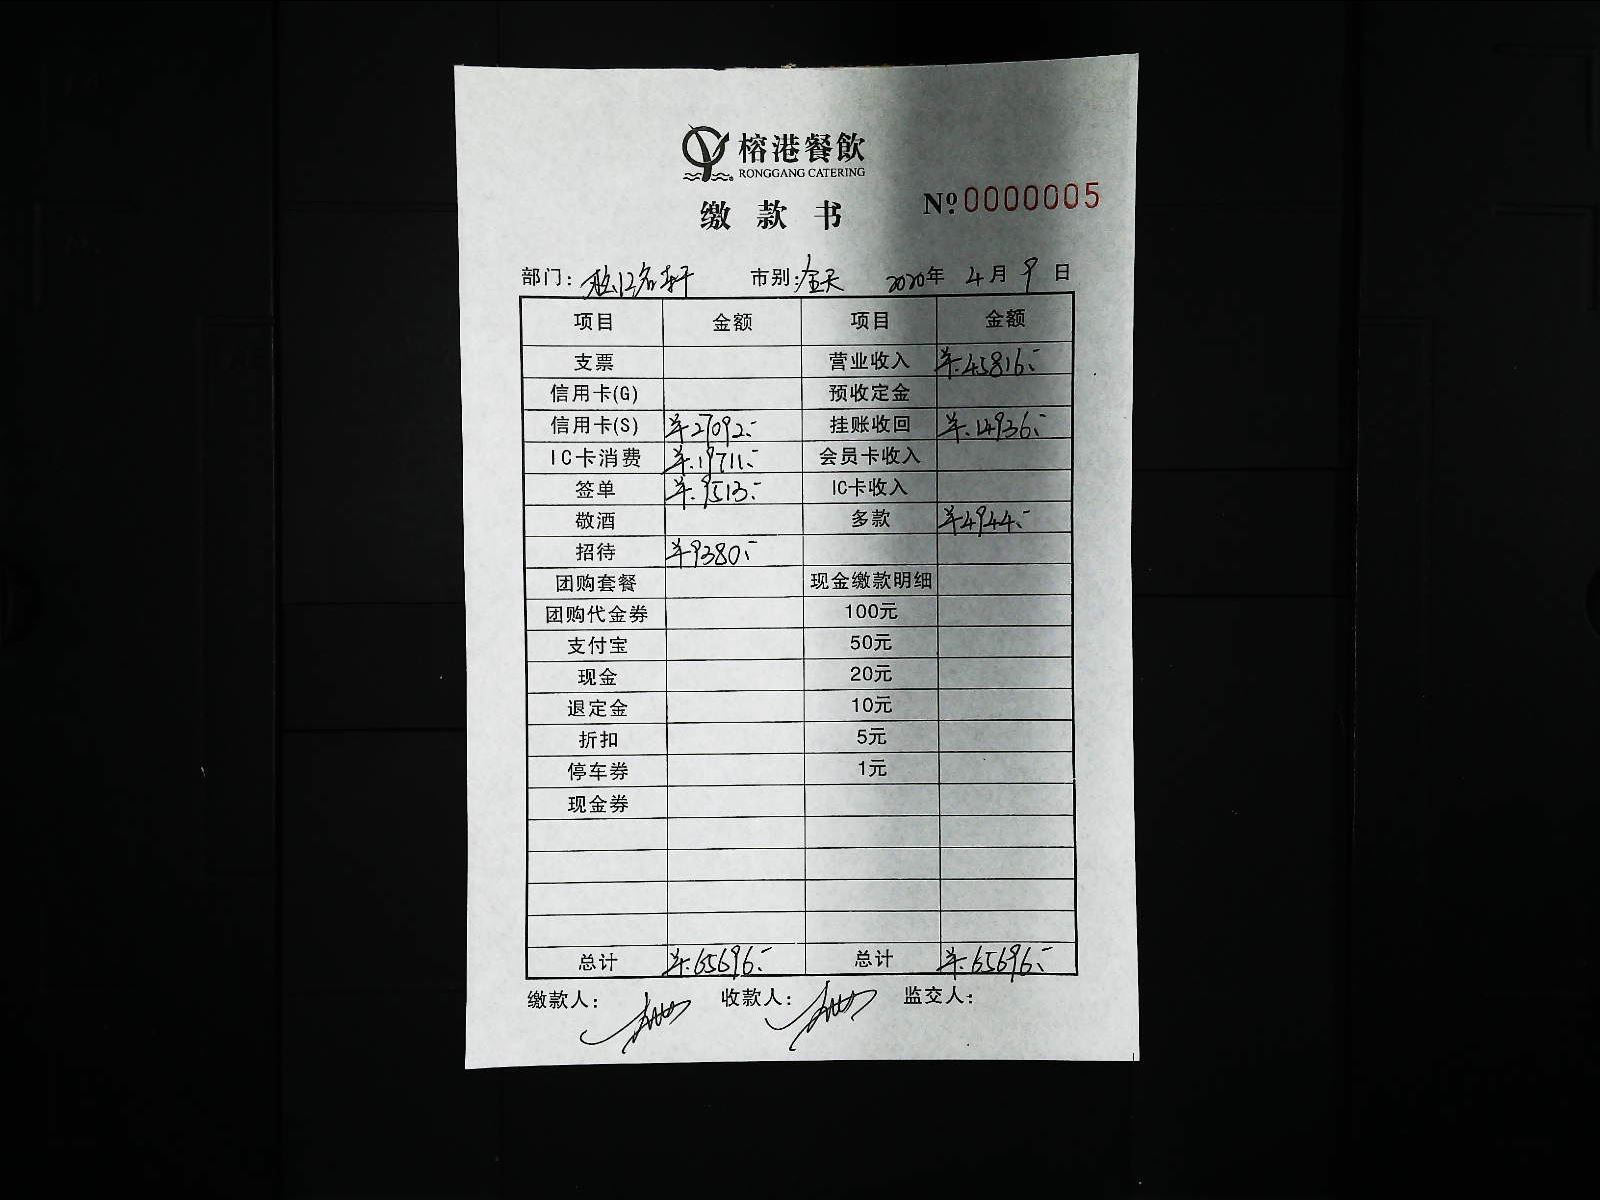 榕港餐飲
RONGGANG CATERING
缴款书 Nº 0000005
部门: 名轩 市别: 全天 2020年 4月 9日
项目 金额 项目 金额
支票 营业收入 ¥.45816.-
信用卡(G) 预收定金
信用卡(S) ¥27092.- 挂账收回 ¥.14936.-
IC卡消费 ¥.19711.- 会员卡收入
签单 ¥.9513.- IC卡收入
敬酒 多款 ¥4944.-
招待 ¥9380.-
团购套餐 现金缴款明细
团购代金券 100元
支付宝 50元
现金 20元
退定金 10元
折扣 5元
停车券 1元
现金券
总计 ¥.65696.- 总计 ¥.65696.-
缴款人: 收款人: 监交人: